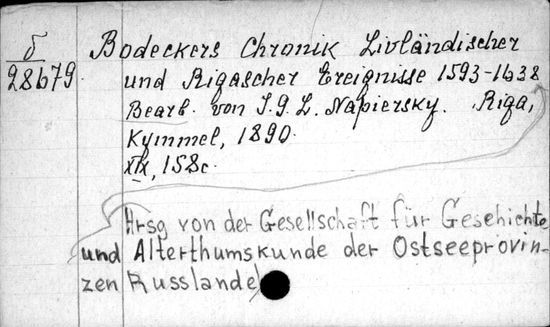 δ
28679.
Bodeckers Chronik Livländischer
und Rigascher Ereignisse 1593-1638
Bearb. von J.G.L. Napiersky. Riga,
Kymmel, 1890.
XIX, 158c.
Hrsg von der Gesellschaft für Geschichte
und Alterthumskunde der Ostseeprovin-
zen Russlande